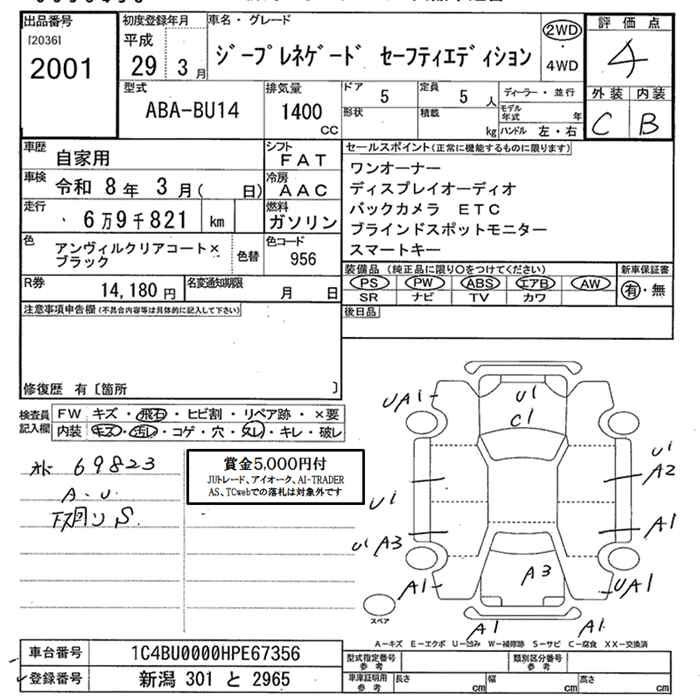 出品番号
[2036]
2001
初度登録年月
平成
29年 3月
車名・グレード
ジープレネゲード セーフティエディション
2WD
・
4WD
評価点
4
外装 内装
C B
型式
ABA-BU14
排気量
1400
cc
ドア
5
定員
5人
形状
積載
kg
ディーラー・並行
モデル年式 年
ハンドル 左・右
車歴
自家用
シフト
FAT
車検
令和 8年 3月( 日)
冷房
AAC
走行
6万9千821 km
燃料
ガソリン
色
アンヴィルクリアコート×
ブラック
色替
色コード
956
R券
14,180円
名変通知期限
月 日
セールスポイント(正常に機能するものに限ります)
ワンオーナー
ディスプレイオーディオ
バックカメラ ETC
ブラインドスポットモニター
スマートキー
装備品(純正品に限り○をつけてください)
PS PW ABS エアB AW
SR ナビ TV カワ
新車保証書
有・無
後日品
注意事項申告欄(不具合内容等は具体的に記入して下さい)
修復歴 有〔箇所 〕
検査員
記入欄
FW キズ・飛石・ヒビ割・リペア跡・×要
内装 キズ・汚レ・コゲ・穴・スレ・キレ・破レ
69823
A・U
下回リS
賞金5,000円付
JUトレード、アイオーク、AI-TRADER
AS、TCwebでの落札は対象外です
UA1
U1
C1
U1
A2
U1
U1 A3
A1
A1
A3
UA1
A1
A1
スペア
A-キズ E-エクボ U-凹み W-補修跡 S-サビ C-腐食 XX-交換済
車台番号
1C4BU0000HPE67356
登録番号
新潟 301 と 2965
型式指定番号
参考
類別区分番号
参考
車庫証明用
参考
長さ cm
幅 cm
高さ cm